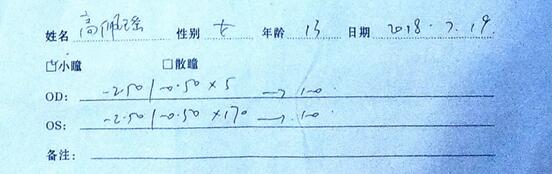 姓名 高佩瑶 性别 女 年龄 13 日期 2018.7.19
☑小瞳 □散瞳
OD: -2.50/-0.50×5 → 1.0
OS: -2.50/-0.50×170 → 1.0
备注: